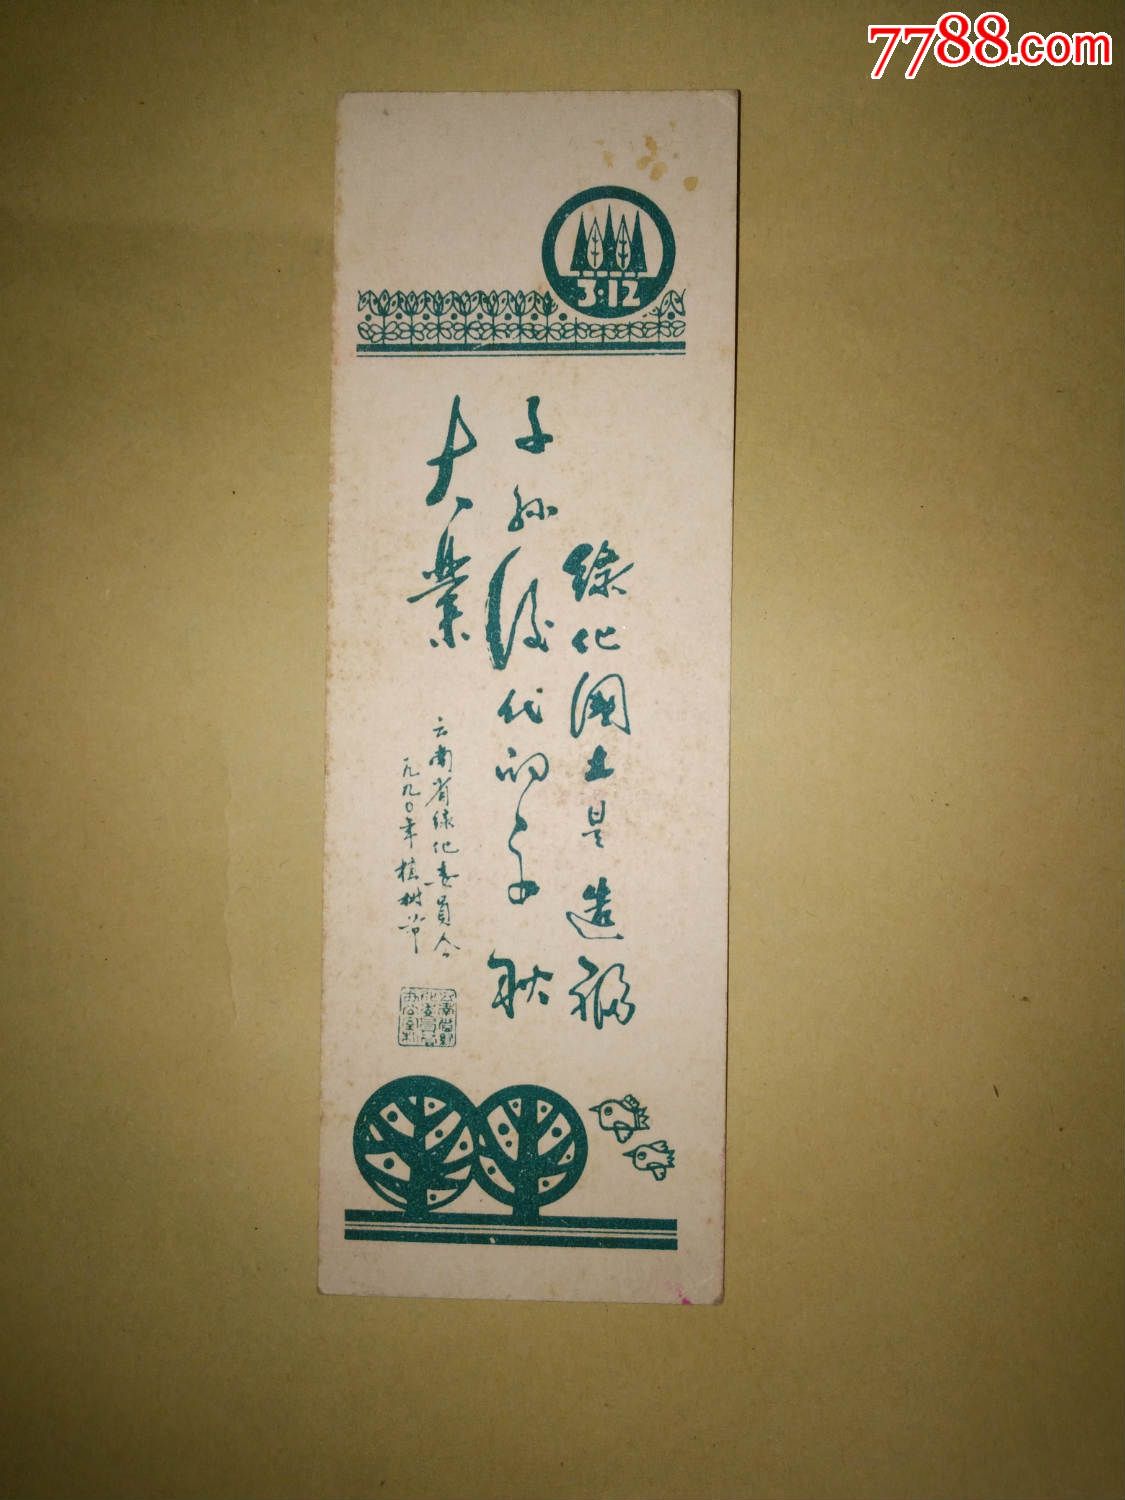 7788.com
3·12
綠化國土是造福
子孙後代的千秋
大業
云南省绿化委員会
一九九〇年植树节